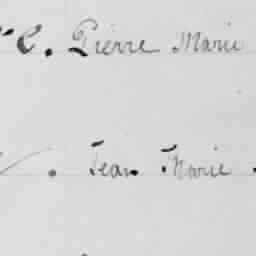 C. Pierre Marie
Jean Marie